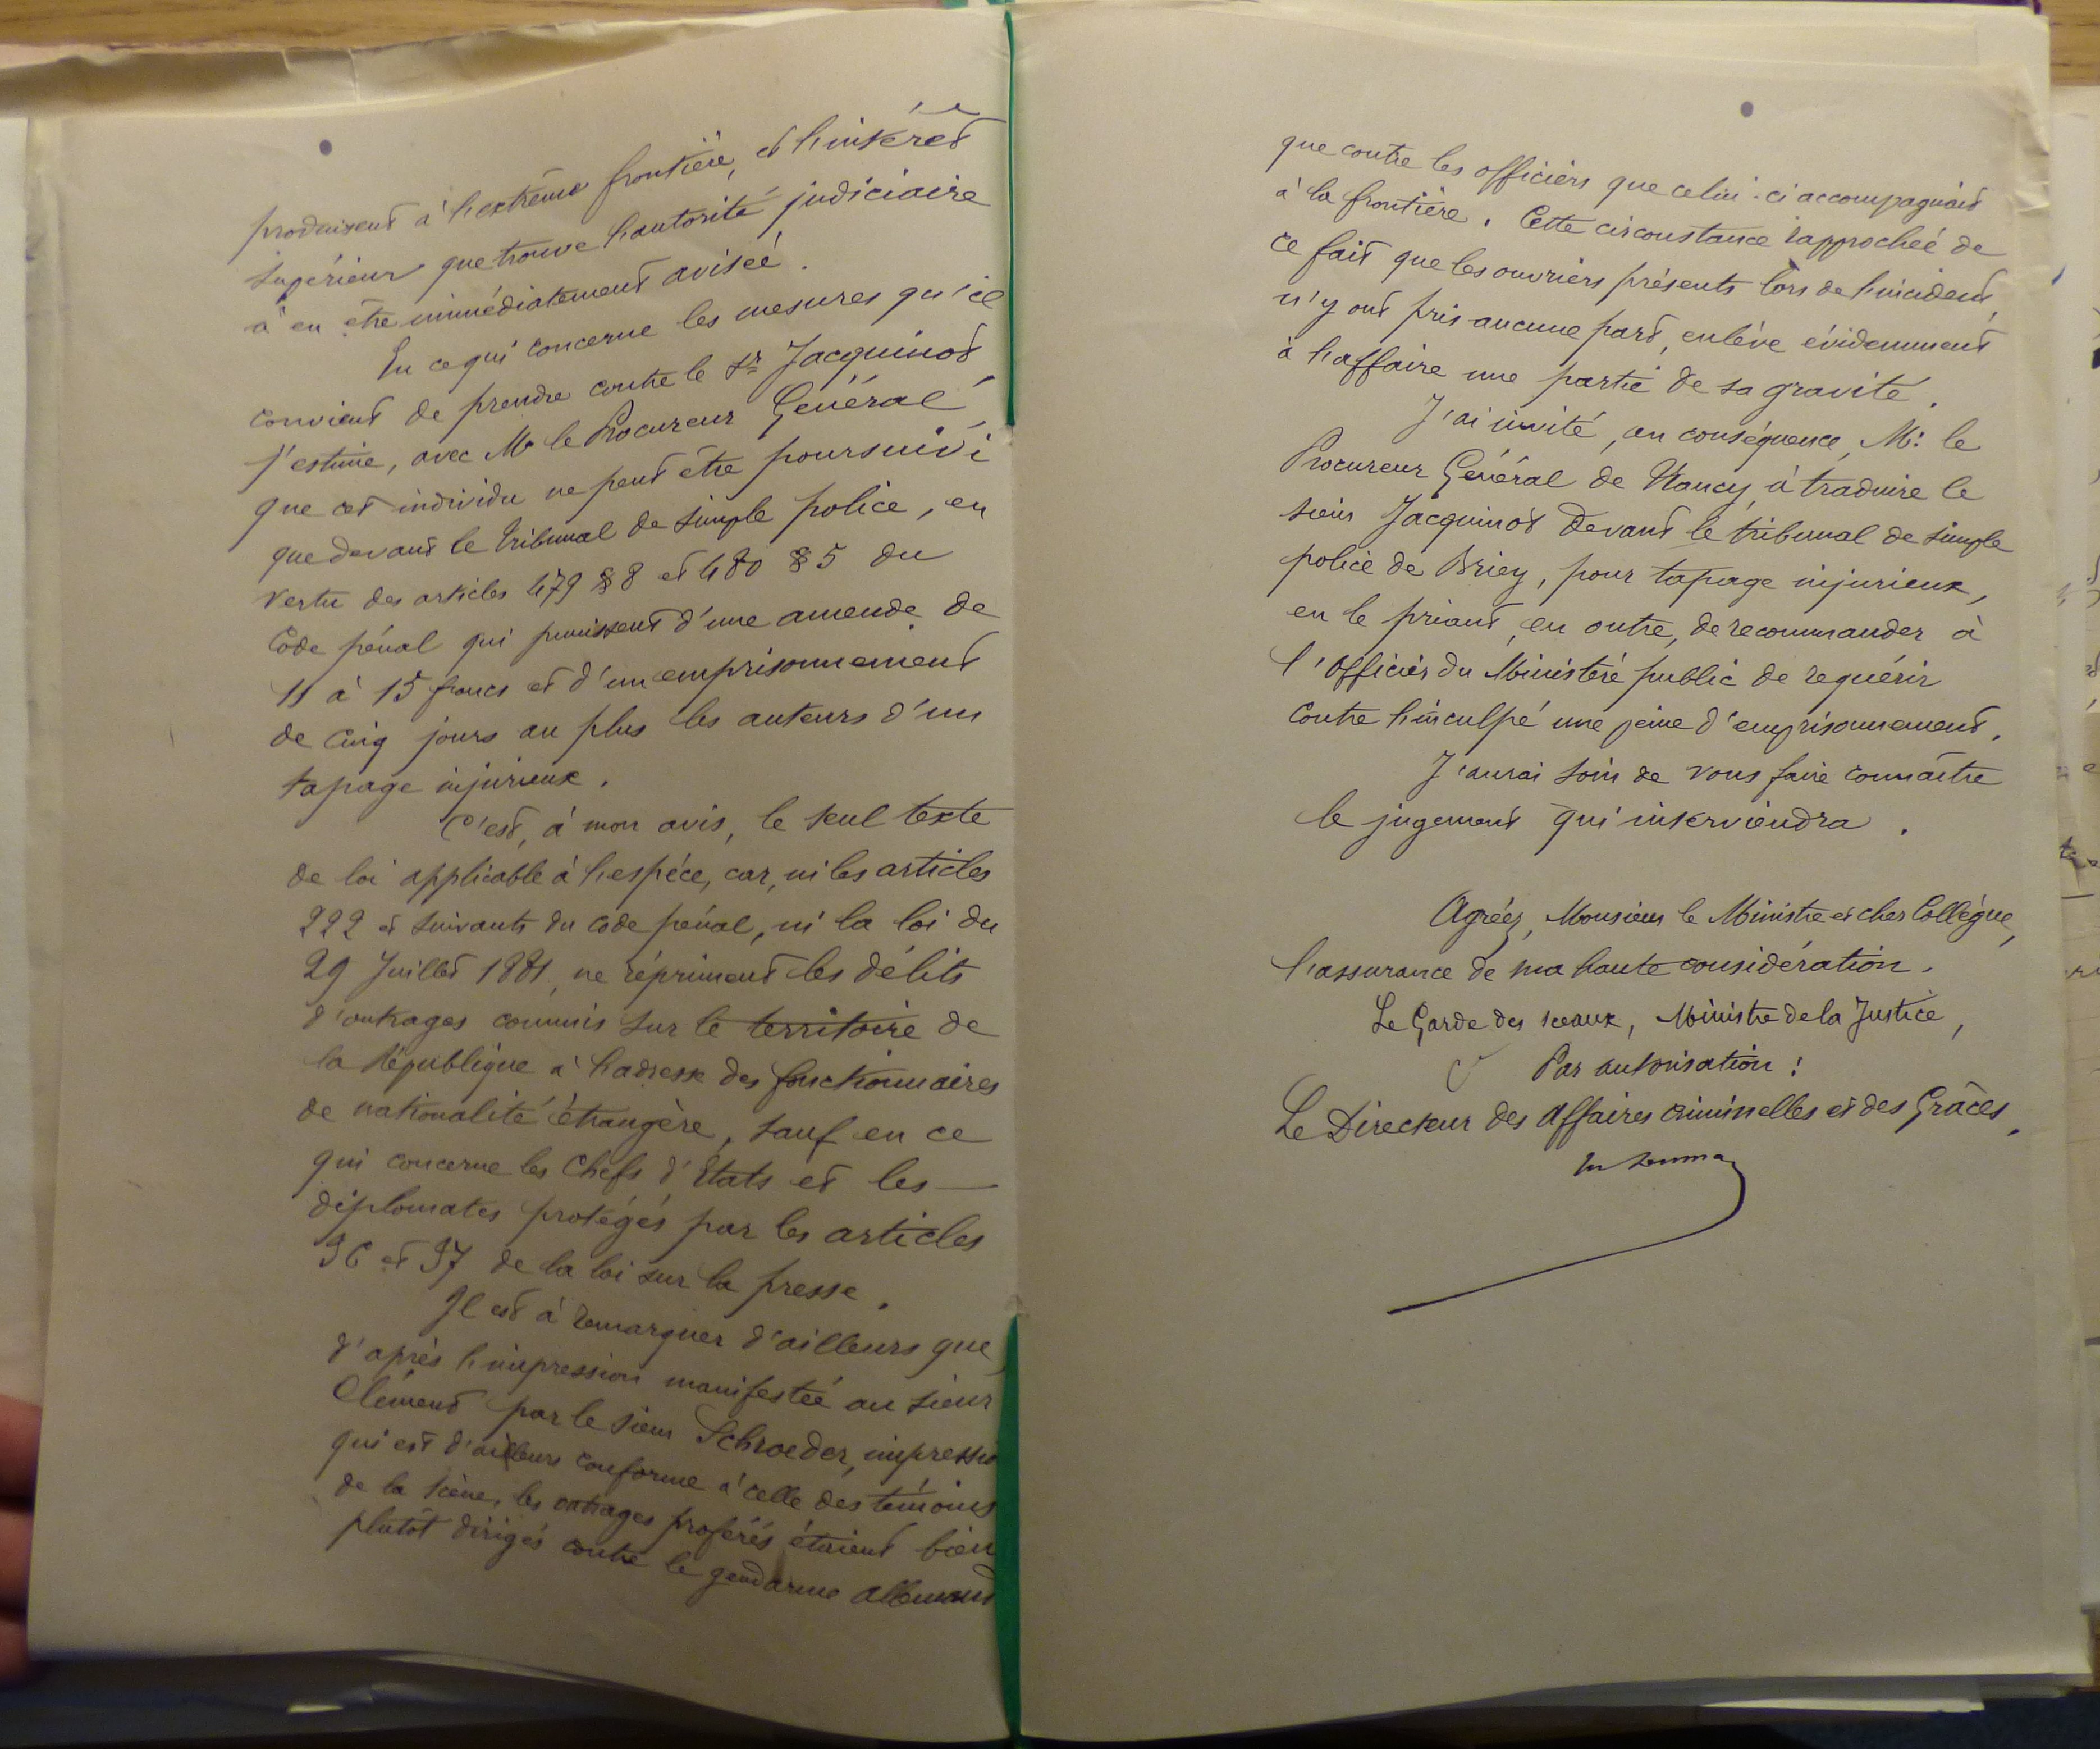 produisent à l'extrême frontière, et l'intérêt
supérieur que trouve l'autorité judiciaire
à en être immédiatement avisée.
En ce qui concerne les mesures qu'il
convient de prendre contre le Sr Jacquinot,
j'estime, avec Mr le Procureur Général,
que cet individu ne peut être poursuivi
que devant le tribunal de simple police, en
vertu des articles 479 § 8 et 480 § 5 du
Code pénal qui punissent d'une amende de
11 à 15 francs et d'un emprisonnement
de cinq jours au plus les auteurs d'un
tapage injurieux.
C'est, à mon avis, le seul texte
de loi applicable à l'espéce, car, ni les articles
222 et suivants du code pénal, ni la loi du
29 Juillet 1881, ne répriment les délits
d'outrages commis sur le territoire de
la République à l'adresse des fonctionnaires
de nationalité étrangère, sauf en ce
qui concerne les Chefs d'Etats et les
diplomates protégés par les articles
36 et 37 de la loi sur la presse.
Il est à remarquer d'ailleurs que,
d'après l'impression manifestée au sieur
Clément par le sieur Schroeder, impression
qui est d'ailleurs conforme à celle des témoins
de la scène, les outrages proférés étaient bien
plutôt dirigés contre le gendarme allemand
que contre les officiers que celui-ci accompagnait
à la frontière. Cette circonstance rapprochée de
ce fait que les ouvriers présents lors de l'incident,
n'y ont pris aucune part, enlève évidemment
à l'affaire une partie de sa gravité.
J'ai invité, en conséquence, Mr le
Procureur Général de Nancy, à traduire le
sieur Jacquinot devant le tribunal de simple
police de Briey, pour tapage injurieux,
en le priant, en outre, de recommander à
l'Officier du Ministère public de requérir
contre l'inculpé une peine d'emprisonnement.
J'aurai soin de vous faire connaître
le jugement qui interviendra.
Agréez, Monsieur le Ministre et cher Collègue,
l'assurance de ma haute considération.
Le Garde des sceaux, Ministre de la Justice,
Par autorisation :
Le Directeur des Affaires criminelles et des Grâces,